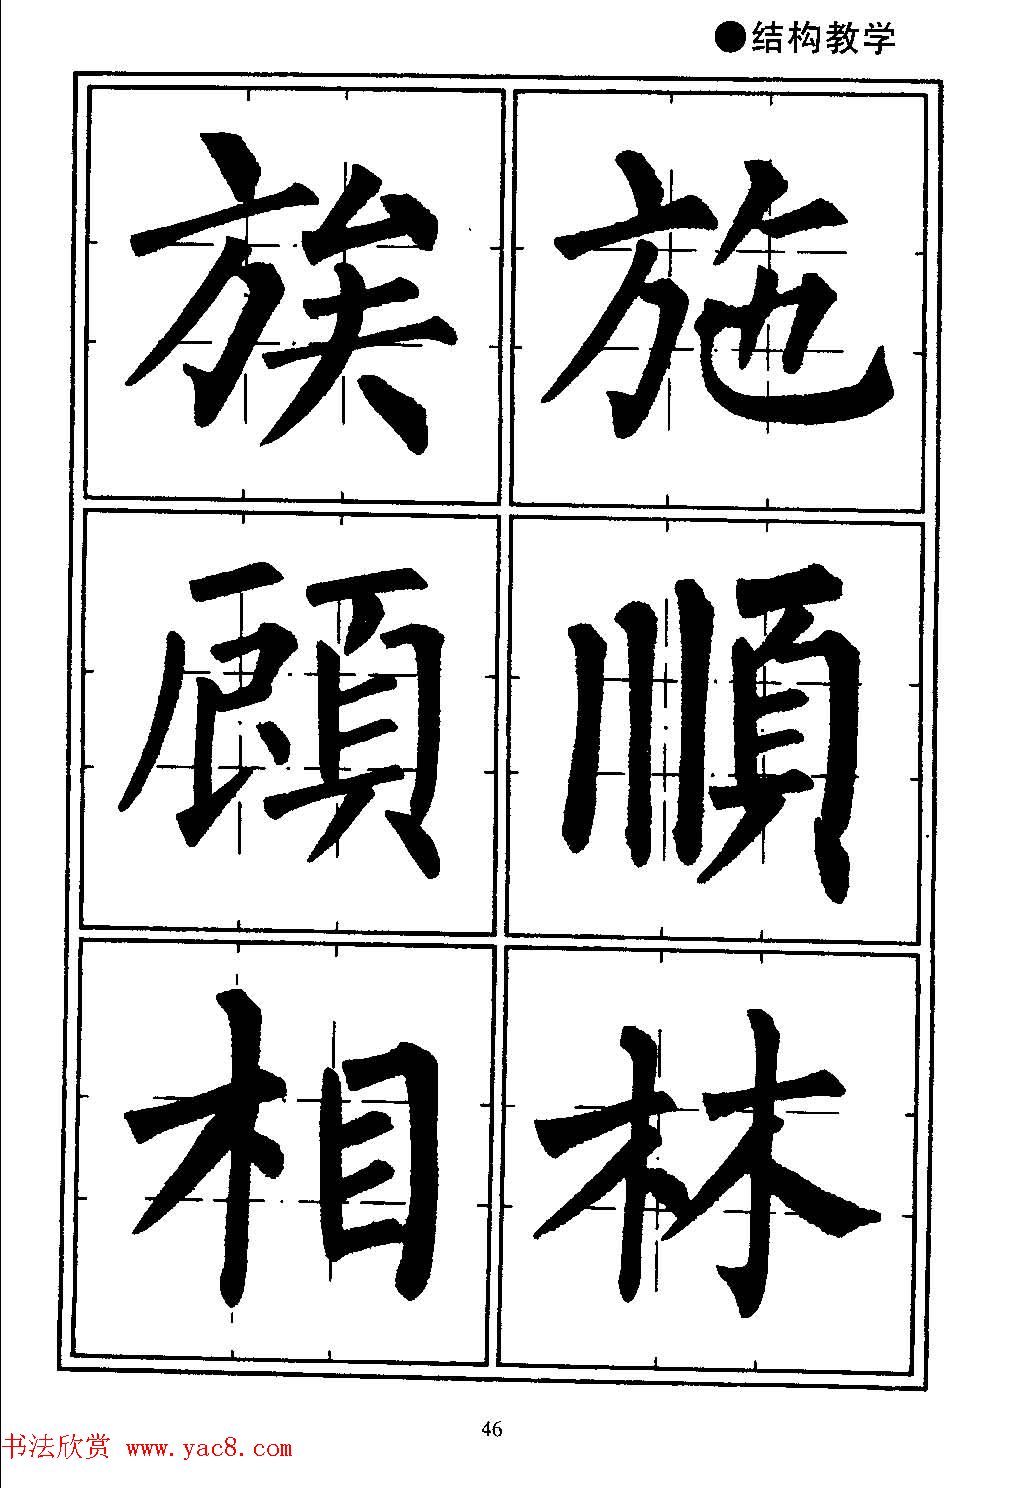 ●结构教学
施族
順顧
林相
46
书法欣赏 www.yac8.com